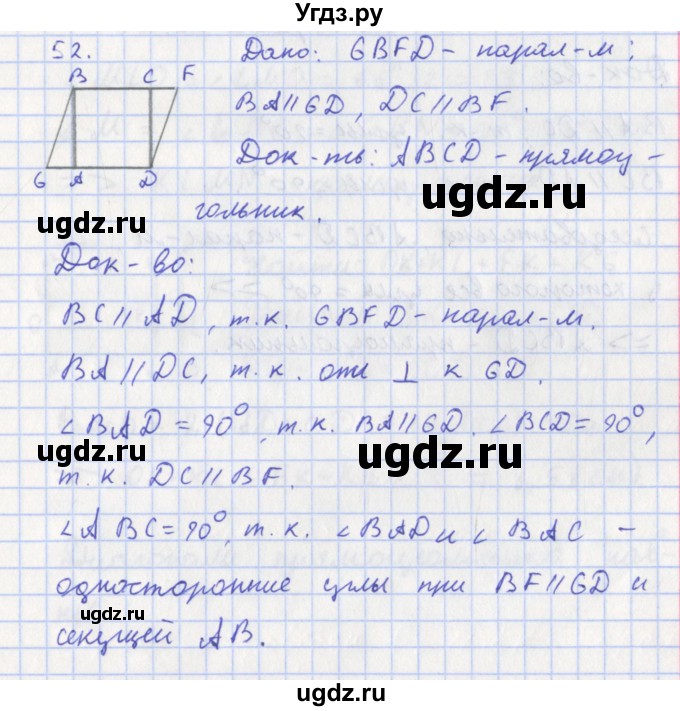 Угдз.ру
52.
Дано: GBFD - парал-м;
B C F
BA∥GD, DC∥BF.
Док-ть: ABCD - прямоу-
G A D
гольник.
ugdz.ru
ugdz.ru
Док-во:
BC∥AD, т.к. GBFD - парал-м.
BA∥DC, т.к. они ⊥ к GD.
∠BAD = 90°, т.к. BA∥GD. ∠BCD = 90°,
ugdz.ru
ugdz.ru
т.к. DC∥BF.
∠ABC = 90°, т.к. ∠BAD и ∠BAC -
односторонние углы при BF∥GD и
ugdz.ru
секущей AB.
ugdz.ru
ugdz.ru